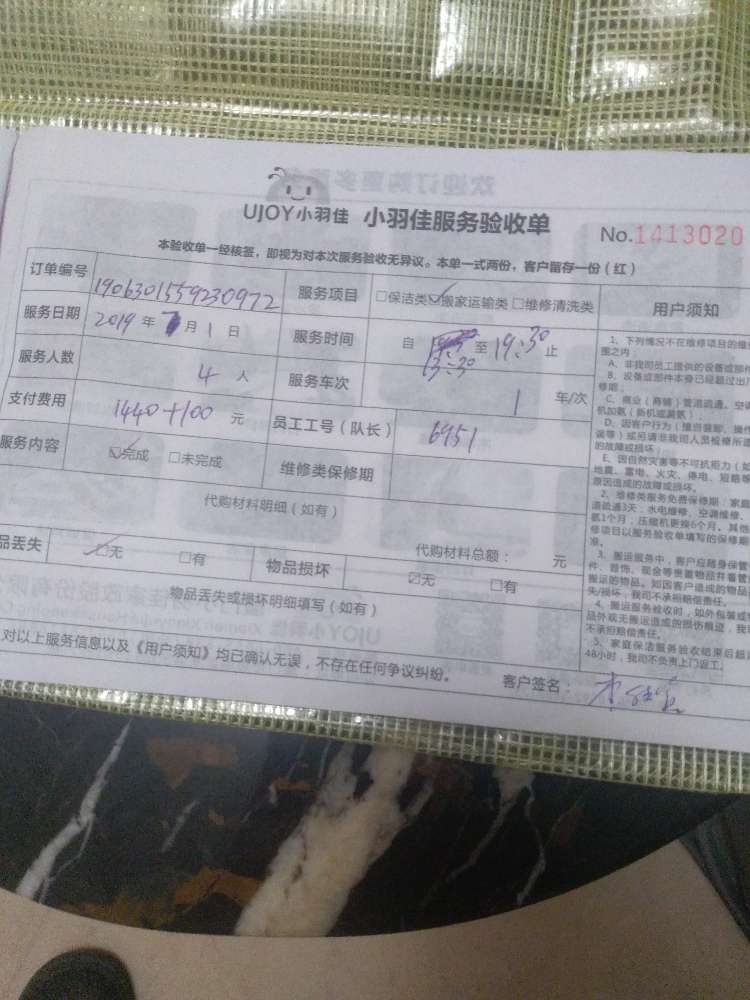 UJOY小羽佳 小羽佳服务验收单
No.1413020
本验收单一经核签，即视为对本次服务验收无异议。本单一式两份，客户留存一份（红）
订单编号 1906301559230972 服务项目 □保洁类☑搬家运输类□维修清洗类
服务日期 2019年7月1日 服务时间 自 13:30 至 19:30 止
服务人数 4人 服务车次 1 车/次
支付费用 1440+100 元 员工工号（队长） 6951
服务内容 ☑完成 □未完成 维修类保修期
代购材料明细（如有）
代购材料总额： 元
品丢失 ☑无 □有 物品损坏 ☑无 □有
物品丢失或损坏明细填写（如有）
对以上服务信息以及《用户须知》均已确认无误，不存在任何争议纠纷。
客户签名：
用户须知
1、下列情况不在维修项目的维
围之内：
A、非我司员工提供的设备或部件
B、设备或部件本身已经超过出
修期；
C、商业（商铺）管道疏通、空
机加氨（新机或漏氨）
D、因客户行为（擅自装卸、操
误等）或另请非我司人员检修所
的故障或损坏
E、因自然灾害等不可抗拒力（如
地震、雷电、火灾、停电、短路等
原因造成的故障或损坏。
2、维修类服务免费保修期：家庭
道疏通3天；水电维修、空调维修、
氨1个月；压缩机更换6个月。其他
修项目以服务验收单填写的保修期
准。
3、搬运服务中，客户应随身保管
件、首饰、现金等贵重物品并看管
搬运的物品。如因客户造成的物品
失/损坏，我司不承担赔偿责任。
4、搬运服务验收时，如外包装或
品外观无搬运造成的损伤痕迹，我
不承担赔偿责任。
5、家庭保洁服务验收结束后超过
48小时，我司不负责上门返工。